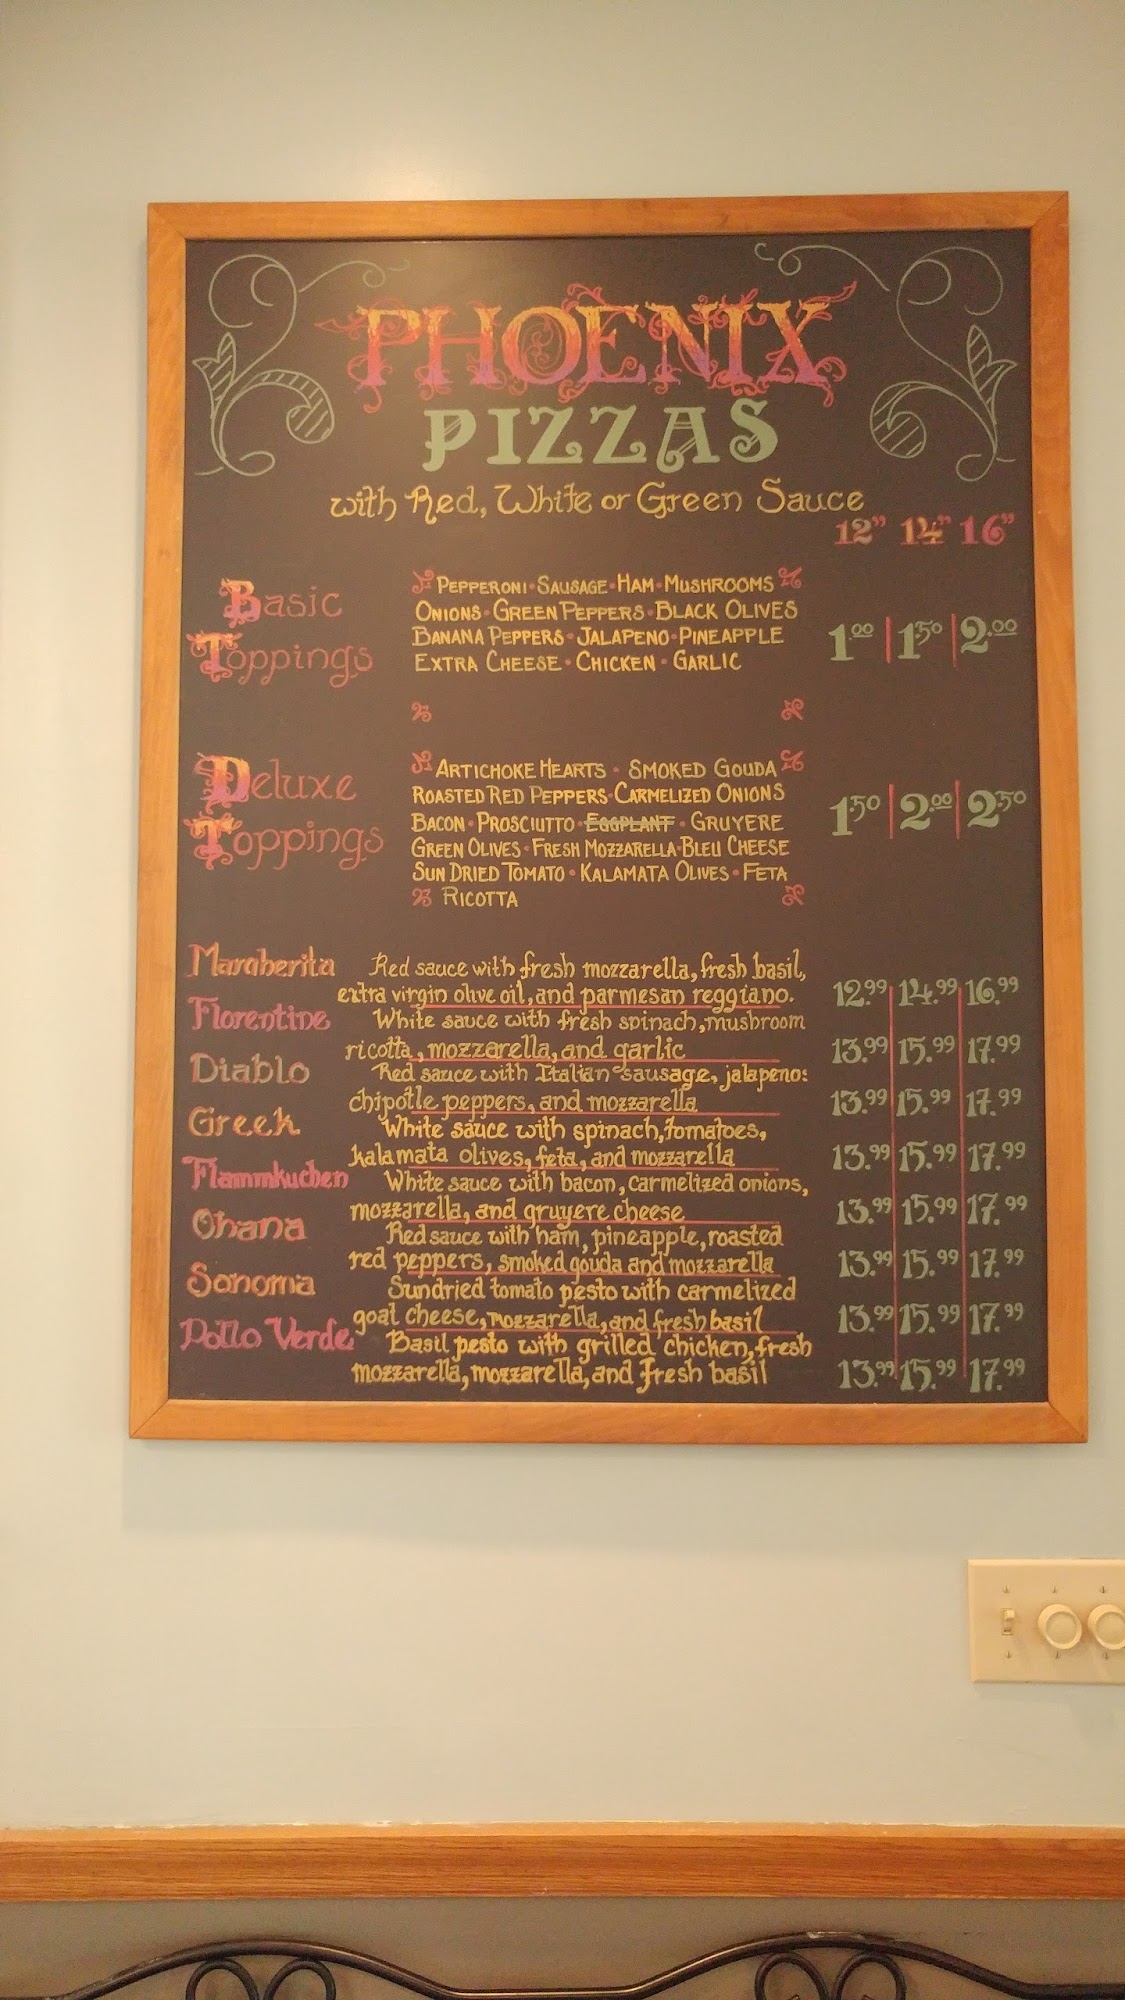 PHOENIX
PIZZAS
with Red, White or Green Sauce
12" 14" 16"
Basic
Toppings
PEPPERONI • SAUSAGE • HAM • MUSHROOMS
ONIONS • GREEN PEPPERS • BLACK OLIVES
BANANA PEPPERS • JALAPENO • PINEAPPLE
EXTRA CHEESE • CHICKEN • GARLIC
1.00 1.50 2.00
Deluxe
Toppings
ARTICHOKE HEARTS • SMOKED GOUDA
ROASTED RED PEPPERS • CARMELIZED ONIONS
BACON • PROSCIUTTO • EGGPLANT • GRUYERE
GREEN OLIVES • FRESH MOZZARELLA • BLEU CHEESE
SUN DRIED TOMATO • KALAMATA OLIVES • FETA
RICOTTA
1.50 2.00 2.50
Margherita Red sauce with fresh mozzarella, fresh basil,
extra virgin olive oil, and parmesan reggiano. 12.99 14.99 16.99
Florentine White sauce with fresh spinach, mushroom
ricotta, mozzarella, and garlic 13.99 15.99 17.99
Diablo Red sauce with Italian sausage, jalapenos
chipotle peppers, and mozzarella 13.99 15.99 17.99
Greek White sauce with spinach, tomatoes,
kalamata olives, feta, and mozzarella 13.99 15.99 17.99
Flammkuchen White sauce with bacon, carmelized onions,
mozzarella, and gruyere cheese 13.99 15.99 17.99
Ohana Red sauce with ham, pineapple, roasted
red peppers, smoked gouda and mozzarella 13.99 15.99 17.99
Sonoma Sundried tomato pesto with carmelized
goat cheese, mozzarella, and fresh basil 13.99 15.99 17.99
Pollo Verde Basil pesto with grilled chicken, fresh
mozzarella, mozzarella, and fresh basil 13.99 15.99 17.99